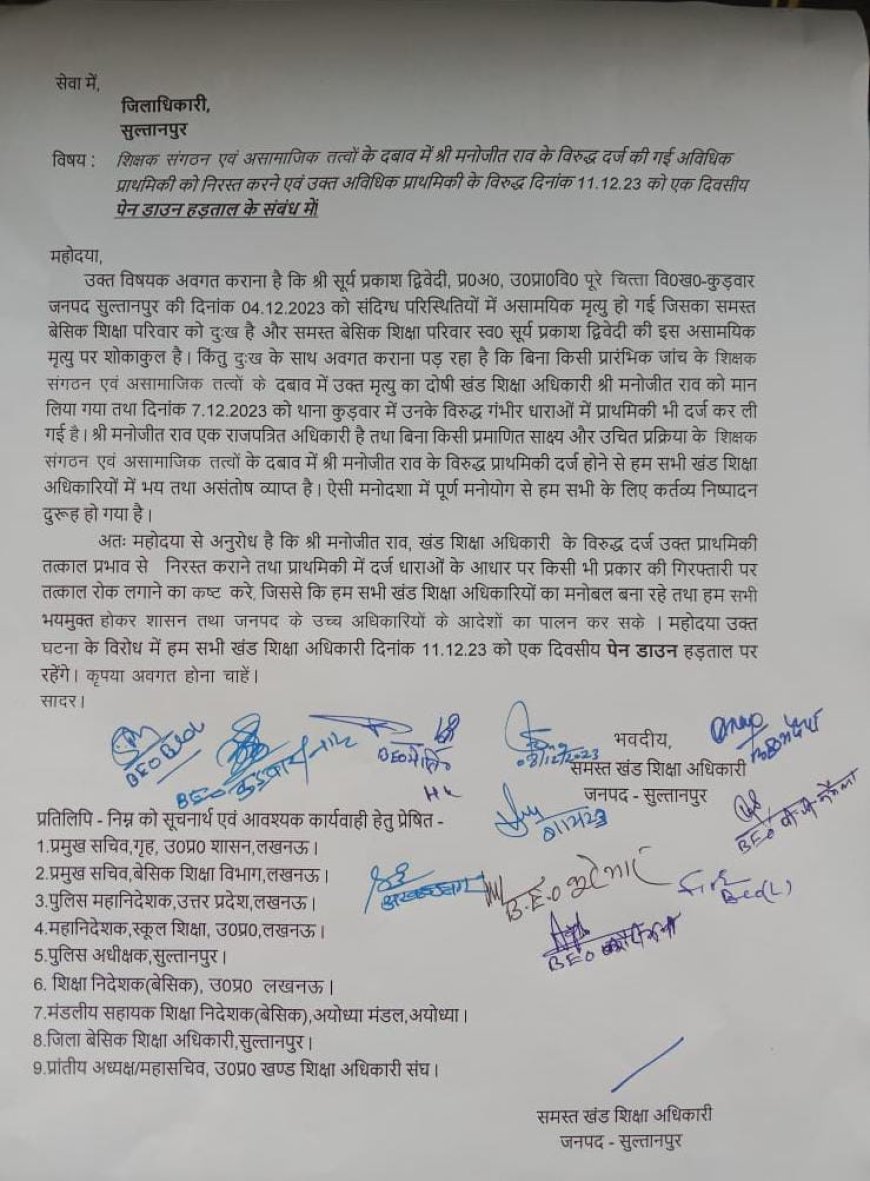 सेवा में,
जिलाधिकारी,
सुल्तानपुर
विषय : शिक्षक संगठन एवं असामाजिक तत्वों के दबाव में श्री मनोजीत राव के विरुद्ध दर्ज की गई अविधिक
प्राथमिकी को निरस्त करने एवं उक्त अविधिक प्राथमिकी के विरुद्ध दिनांक 11.12.23 को एक दिवसीय
पेन डाउन हड़ताल के संबंध में
महोदया,
उक्त विषयक अवगत कराना है कि श्री सूर्य प्रकाश द्विवेदी, प्र0अ0, उ0प्रा0वि0 पूरे चित्ता वि0ख0-कुड़वार
जनपद सुल्तानपुर की दिनांक 04.12.2023 को संदिग्ध परिस्थितियों में असामयिक मृत्यु हो गई जिसका समस्त
बेसिक शिक्षा परिवार को दुःख है और समस्त बेसिक शिक्षा परिवार स्व0 सूर्य प्रकाश द्विवेदी की इस असामयिक
मृत्यु पर शोकाकुल है। किंतु दुःख के साथ अवगत कराना पड़ रहा है कि बिना किसी प्रारंभिक जांच के शिक्षक
संगठन एवं असामाजिक तत्वों के दबाव में उक्त मृत्यु का दोषी खंड शिक्षा अधिकारी श्री मनोजीत राव को मान
लिया गया तथा दिनांक 7.12.2023 को थाना कुड़वार में उनके विरुद्ध गंभीर धाराओं में प्राथमिकी भी दर्ज कर ली
गई है। श्री मनोजीत राव एक राजपत्रित अधिकारी है तथा बिना किसी प्रमाणित साक्ष्य और उचित प्रक्रिया के शिक्षक
संगठन एवं असामाजिक तत्वों के दबाव में श्री मनोजीत राव के विरुद्ध प्राथमिकी दर्ज होने से हम सभी खंड शिक्षा
अधिकारियों में भय तथा असंतोष व्याप्त है। ऐसी मनोदशा में पूर्ण मनोयोग से हम सभी के लिए कर्तव्य निष्पादन
दुरूह हो गया है।
अतः महोदया से अनुरोध है कि श्री मनोजीत राव, खंड शिक्षा अधिकारी के विरुद्ध दर्ज उक्त प्राथमिकी
तत्काल प्रभाव से निरस्त कराने तथा प्राथमिकी में दर्ज धाराओं के आधार पर किसी भी प्रकार की गिरफ्तारी पर
तत्काल रोक लगाने का कष्ट करे, जिससे कि हम सभी खंड शिक्षा अधिकारियों का मनोबल बना रहे तथा हम सभी
भयमुक्त होकर शासन तथा जनपद के उच्च अधिकारियों के आदेशों का पालन कर सके । महोदया उक्त
घटना के विरोध में हम सभी खंड शिक्षा अधिकारी दिनांक 11.12.23 को एक दिवसीय पेन डाउन हड़ताल पर
रहेंगे। कृपया अवगत होना चाहें।
सादर।
भवदीय,
समस्त खंड शिक्षा अधिकारी
जनपद - सुल्तानपुर
BEO
BEO कुड़वार
BEO
08/12/2023
BEO
B.E.O
BEO
प्रतिलिपि - निम्न को सूचनार्थ एवं आवश्यक कार्यवाही हेतु प्रेषित -
1.प्रमुख सचिव,गृह, उ0प्र0 शासन,लखनऊ।
2.प्रमुख सचिव,बेसिक शिक्षा विभाग,लखनऊ।
3.पुलिस महानिदेशक,उत्तर प्रदेश,लखनऊ।
4.महानिदेशक,स्कूल शिक्षा, उ0प्र0,लखनऊ।
5.पुलिस अधीक्षक,सुल्तानपुर।
6. शिक्षा निदेशक(बेसिक), उ0प्र0 लखनऊ।
7.मंडलीय सहायक शिक्षा निदेशक(बेसिक),अयोध्या मंडल,अयोध्या।
8.जिला बेसिक शिक्षा अधिकारी,सुल्तानपुर।
9.प्रांतीय अध्यक्ष/महासचिव, उ0प्र0 खण्ड शिक्षा अधिकारी संघ।
समस्त खंड शिक्षा अधिकारी
जनपद - सुल्तानपुर